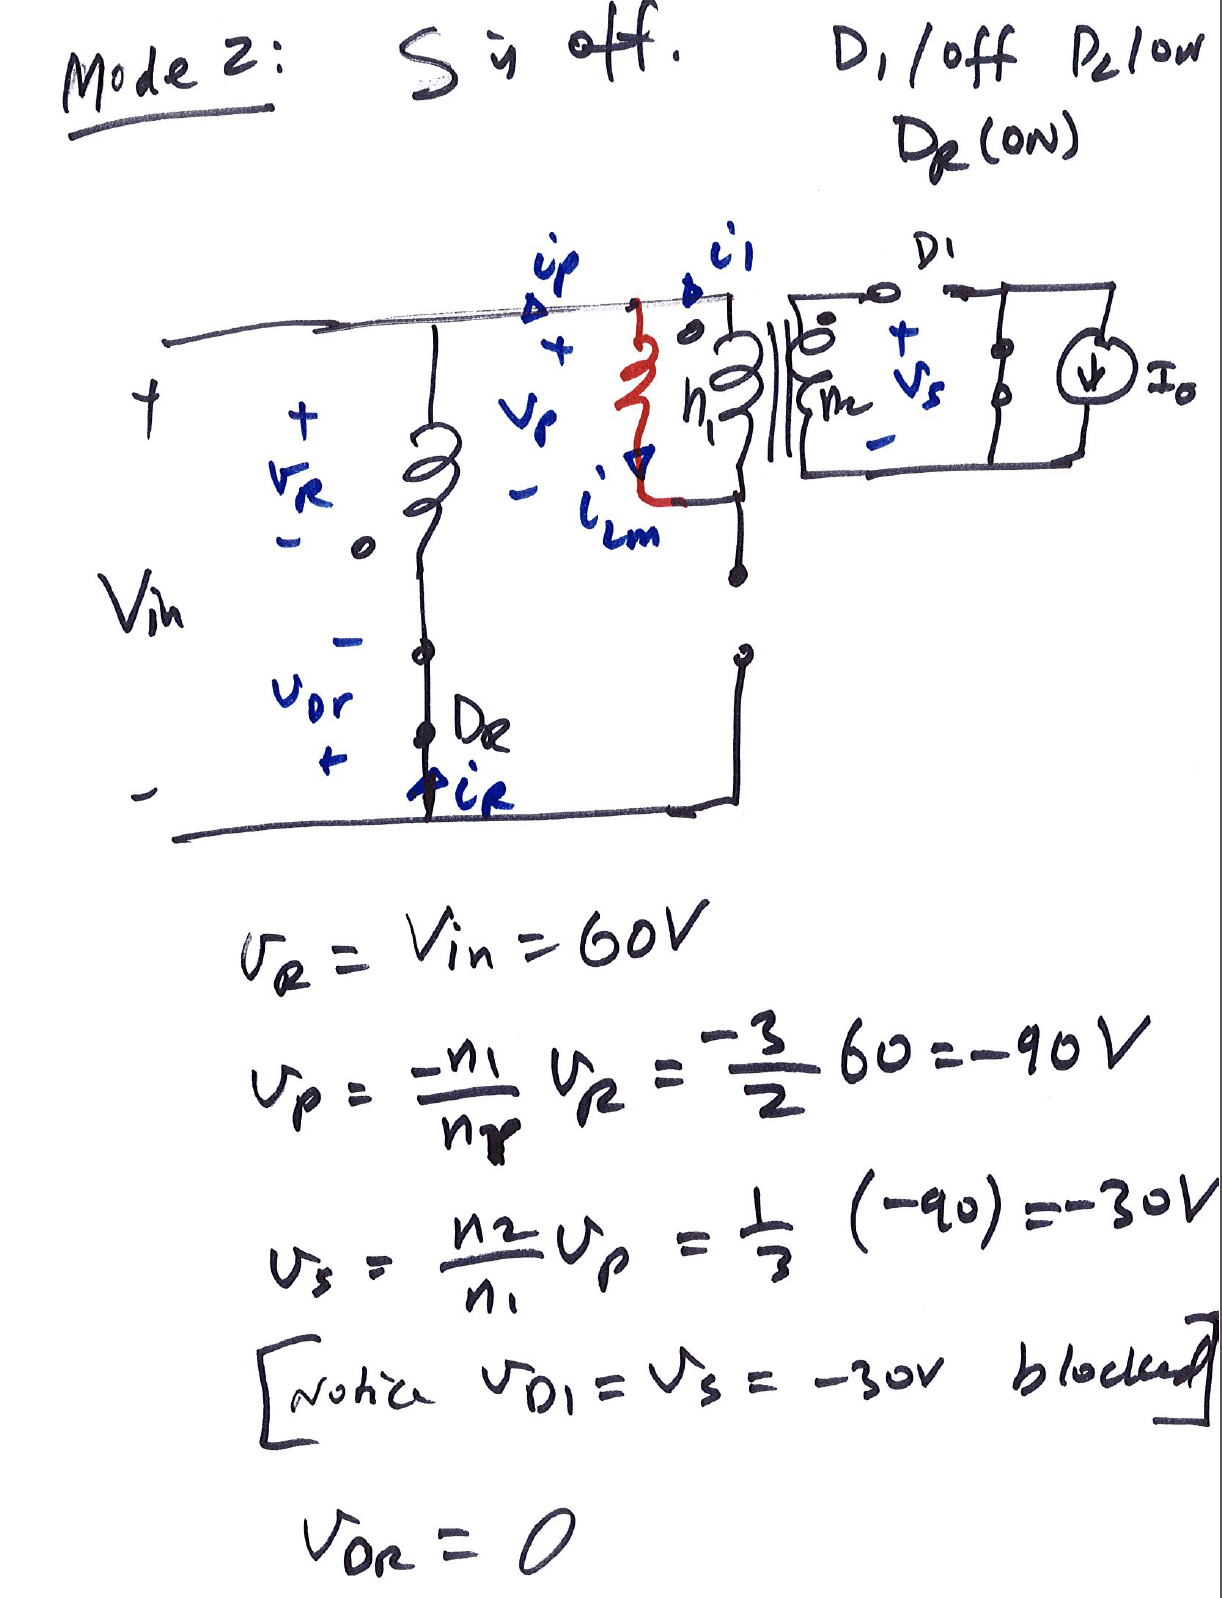 Mode 2: S is off. D1/off D2/on
DR (ON)
ip i1 D1
+ +
+ + vp n1 n2 vs Io
vR - -
- iLm
Vin
-
vDr DR
+
- iR
vR = Vin = 60V
vp = -n1/nr vR = -3/2 60 = -90V
vs = n2/n1 vp = 1/3 (-90) = -30V
[Notice vD1 = vs = -30V blocked]
vDR = 0